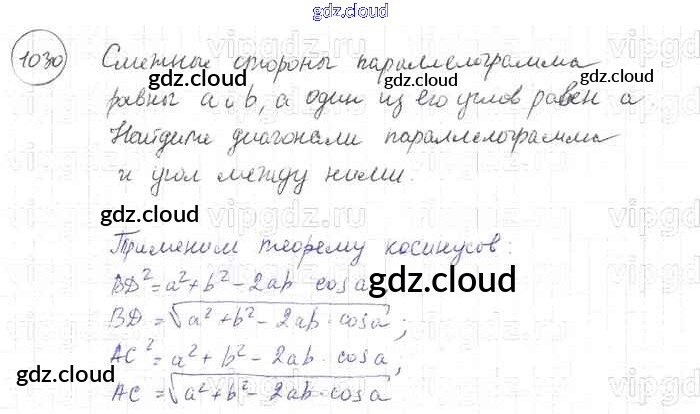 gdz.cloud
1030 Смежные стороны параллелограмма
gdz.cloud gdz.cloud
равны a и b, а один из его углов равен a.
Найдите диагонали параллелограмма
и угол между ними.
gdz.cloud
Применим теорему косинусов:
BD² = a² + b² - 2ab cos a
gdz.cloud
BD = √a² + b² - 2ab · cos a;
AC² = a² + b² - 2ab · cos a,
gdz.cloud
AC = √a² + b² - 2ab · cos a